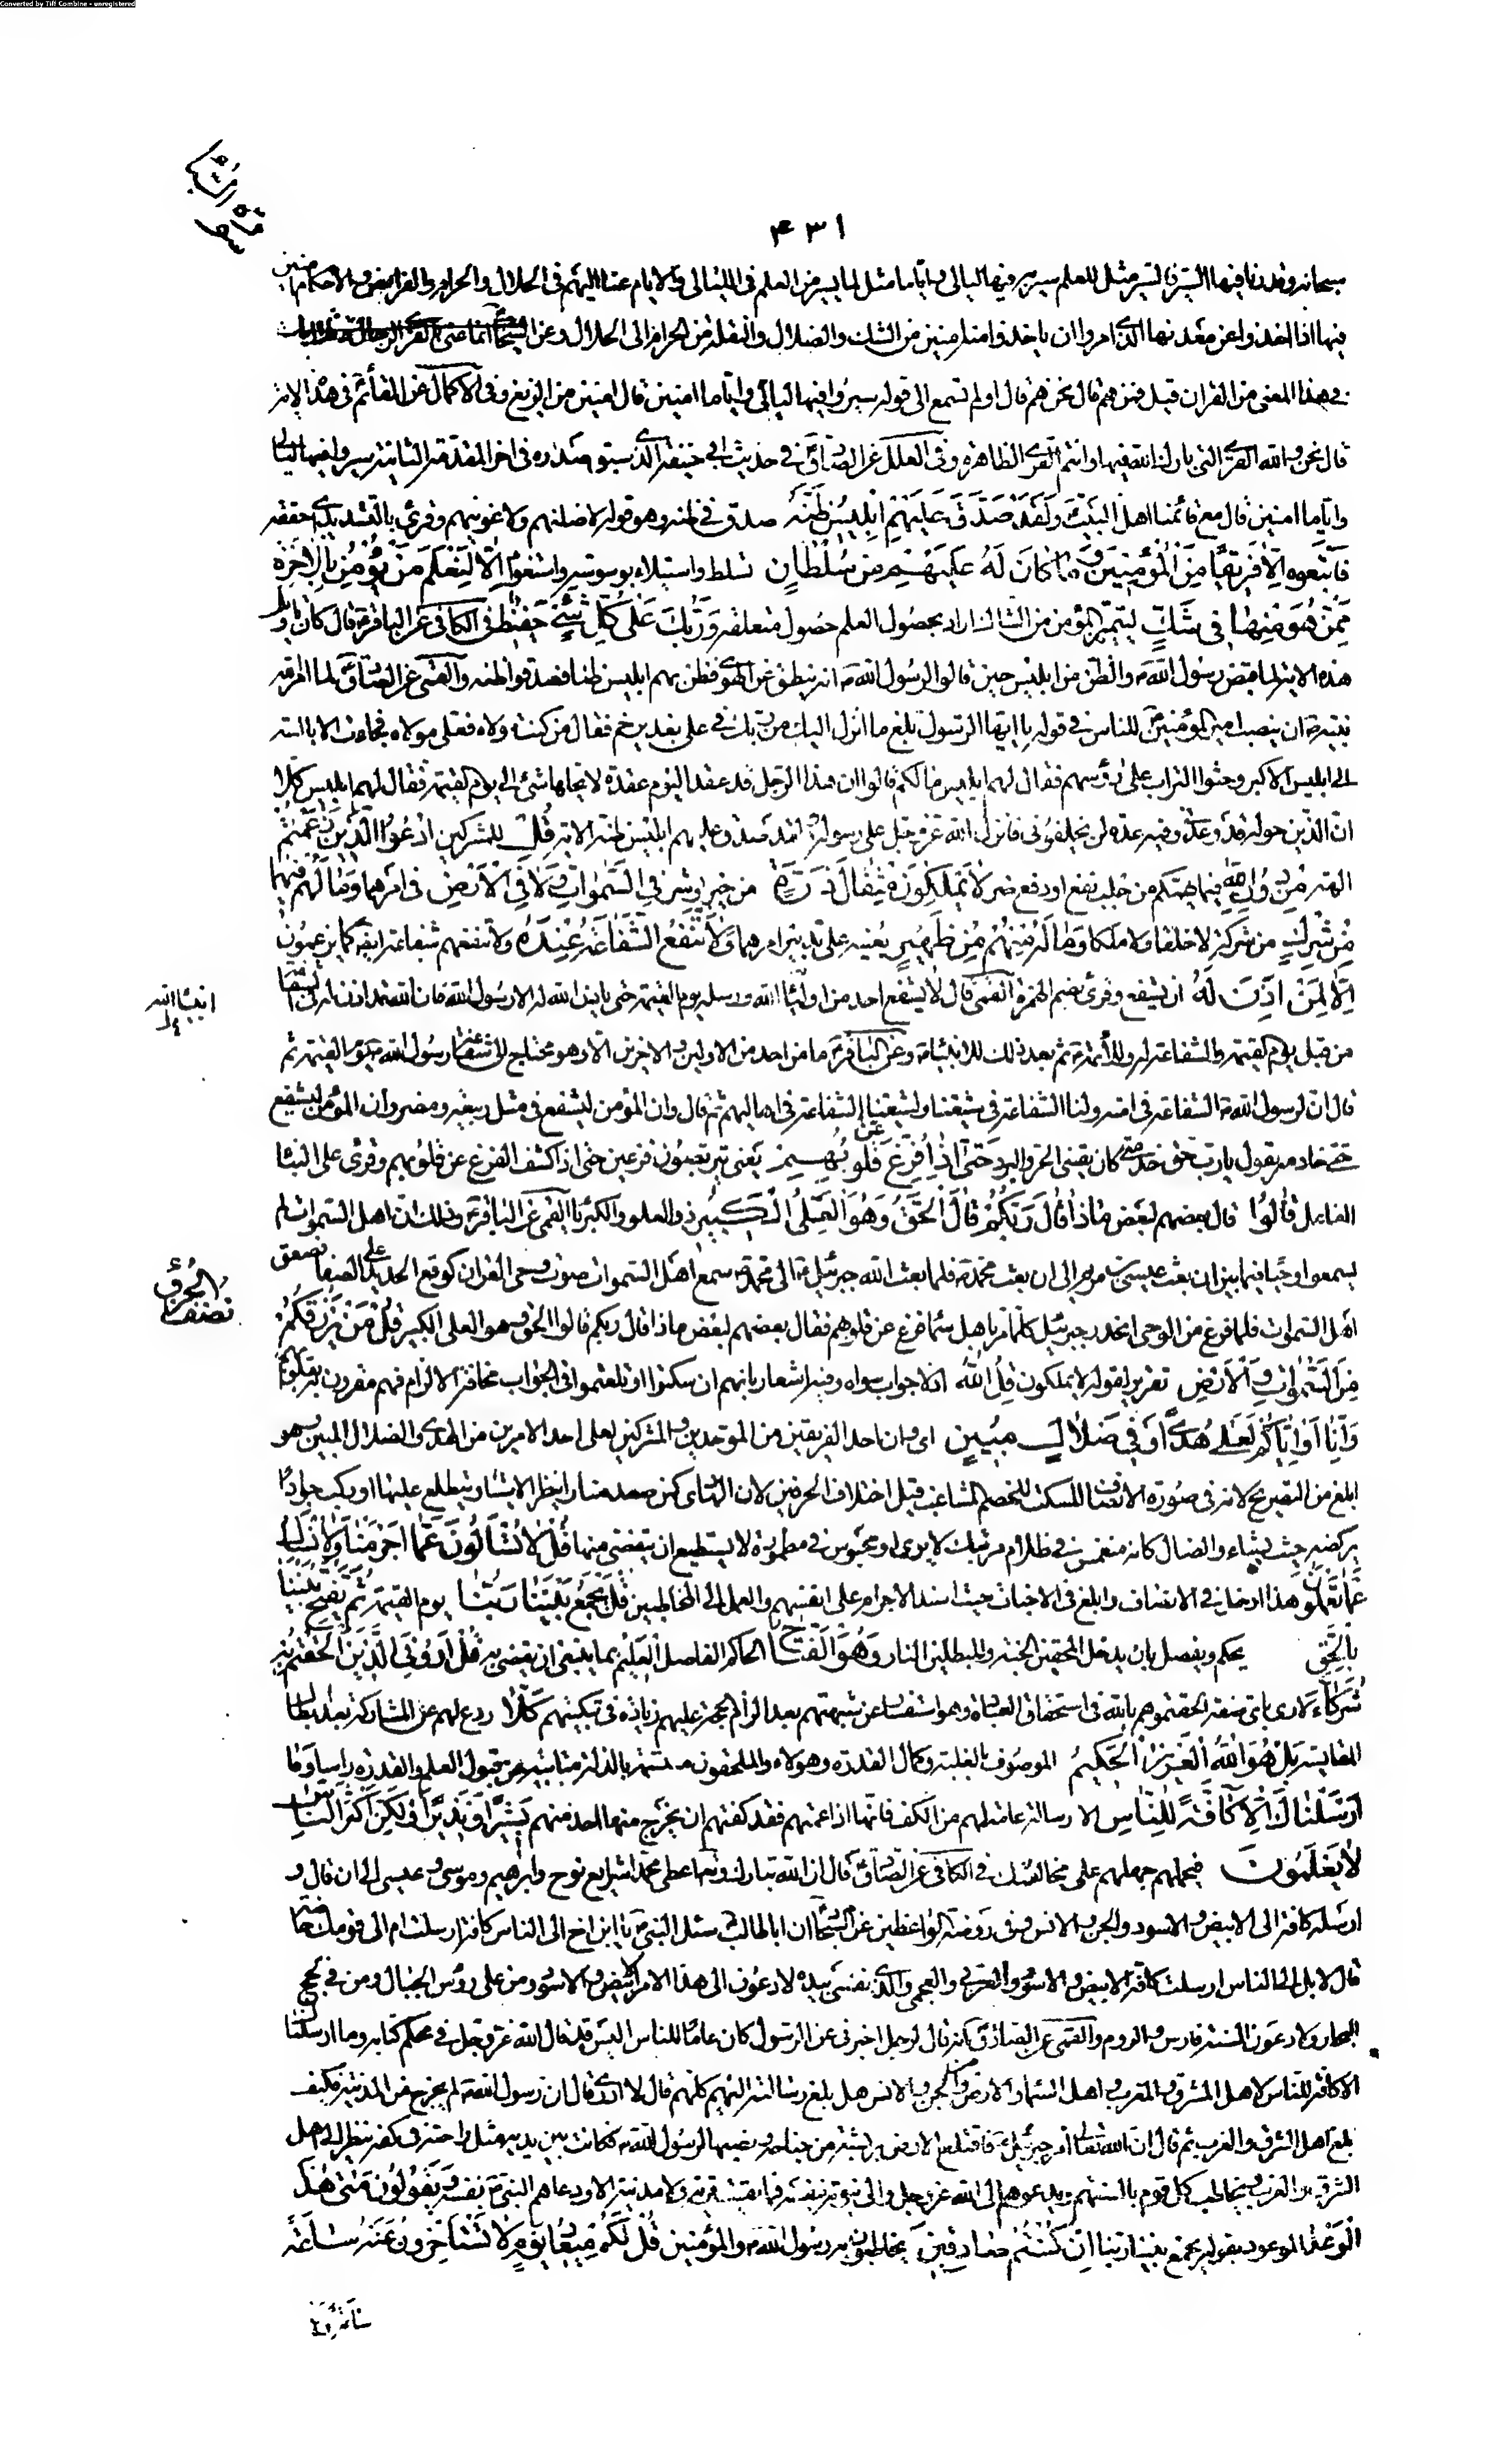 Converted by Tiff Combine - unregistered
سورة السبا
٤٣١
سبحانه وقدرنا فيها السير فالسير مثل للعلم سير به فيها ليالي واياما مثل لما يسير من العلم في الليالي والايام عنا اليهم في الحلال والحرام والفرايض والاحكام امنين
فيها اذا اخذوا عن معدنها الذي امروا ان ياخذوا منه امنين من الشك والضلال والنقلة من الحرام الى الحلال وعن السجاد انما عنى بالقرى الرجال ثم تلا ايات
في هذا المعنى من القران قيل فمن هم قال نحن هم قال اولم تسمع الى قوله سيروا فيها ليالي واياما امنين قال امنين من الزيغ وفي الاكمال عن القائم في هذه الاية
قال نحن والله القرى التي بارك الله فيها وانتم القرى الظاهرة وفي العلل عن الصادق في حديث ابي حنيفة الذي سبق صدره في اخر المقدمة الثانية سيروا فيها ليالي
واياما امنين قال مع قائمنا اهل البيت وَلَقَدْ صَدَّقَ عَلَيْهِمْ اِبْلِيسُ ظَنَّهُ صدق في ظنه وهو قوله لاضلنهم ولاغوينهم وقرئ بالتشديد اي حققه
فَاتَّبَعُوهُ اِلَّا فَرِيقًا مِنَ الْمُؤْمِنِينَ وَمَا كَانَ لَهُ عَلَيْهِمْ مِنْ سُلْطَانٍ تسلط واستيلاء بوسوسة واستغواء اِلَّا لِنَعْلَمَ مَنْ يُؤْمِنُ بِالْاخِرَةِ
مِمَّنْ هُوَ مِنْهَا فِي شَكٍّ ليتميز المؤمن من الشاك اراد بحصول العلم حصول متعلقه وَرَبُّكَ عَلَى كُلِّ شَيْءٍ حَفِيظٌ في الكافي عن الباقر قال كان تاويل
هذه الاية لما قبض رسول الله والظن من ابليس حين قالوا لرسول الله انه ينطق عن الهوى فظن بهم ابليس ظنا فصدقوا ظنه والقمي عن الصادق لما امر الله
نبيه ان ينصب امير المؤمنين للناس في قوله يا ايها الرسول بلغ ما انزل اليك من ربك في علي بغدير خم فقال من كنت مولاه فعلي مولاه فجاءت الابالسة
الى ابليس الاكبر وحثوا التراب على رؤسهم فقال لهم ابليس ما لكم قالوا ان هذا الرجل قد عقد اليوم عقدة لا يحلها شئ الى يوم القيمة فقال لهم ابليس كلا
ان الذين حوله قد وعدوني فيه عدة لن يخلفوني فانزل الله عز وجل على رسوله لقد صدق عليهم ابليس ظنه الاية قُلِ للمشركين ادْعُوا الَّذِينَ زَعَمْتُمْ
الهة مِنْ دُونِ اللهِ فيما يهمكم من جلب نفع او دفع ضر لَا يَمْلِكُونَ مِثْقَالَ ذَرَّةٍ من خير او شر فِي السَّمٰوَاتِ وَلَا فِي الْاَرْضِ في امرهما وَمَا لَهُمْ فِيهِمَا
مِنْ شِرْكٍ من شركة لا خلقا ولا ملكا وَمَا لَهُ مِنْهُمْ مِنْ ظَهِيرٍ يعينه على تدبير امرهما وَلَا تَنْفَعُ الشَّفَاعَةُ عِنْدَهُ ولا تنفعهم شفاعة ايضا كما يزعمون
اِلَّا لِمَنْ اَذِنَ لَهُ ان يشفع وقرئ بضم الهمزة القمي قال لا يشفع احد من اولياء الله ورسله يوم القيمة حتى ياذن الله له الا رسول الله فان الله قد اذن له في الشفاعة
انبياء الله
من قبل يوم القيمة والشفاعة له وللائمة ثم بعد ذلك للانبياء وعن الباقر ما من احد من الاولين والاخرين الا وهو محتاج الى شفاعة رسول الله يوم القيمة ثم
قال ان لرسول الله الشفاعة في امته ولنا الشفاعة في شيعتنا ولشيعتنا الشفاعة في اهاليهم ثم قال وان المؤمن ليشفع في مثل ربيعة ومضر وان المؤمن ليشفع
حتى لخادمه يقول يا رب حق خدمتي كان يقيني الحر والبرد حَتّٰى اِذَا فُزِّعَ عَنْ قُلُوبِهِمْ يعني يتربصون فزعين حتى اذا كشف الفزع عن قلوبهم وقرئ على البناء
الفاعل قَالُوا قال بعضهم لبعض مَاذَا قَالَ رَبُّكُمْ قَالُوا الْحَقَّ وَهُوَ الْعَلِيُّ الْكَبِيرُ ذو العلو والكبرياء القمي عن الباقر وذلك ان اهل السموات لم
يسمعوا وحيا فيما بين ان بعث عيسى بن مريم الى ان بعث محمد فلما بعث الله جبرئيل الى محمد سمع اهل السموات صوت وحي القران كوقع الحديد على الصفا فصعق
الجزؤ
نصف
اهل السموات فلما فرغ من الوحي انحدر جبرئيل كلما مر باهل سماء فزع عن قلوبهم فقال بعضهم لبعض ماذا قال ربكم قالوا الحق وهو العلي الكبير قُلْ مَنْ يَرْزُقُكُمْ
مِنَ السَّمٰوَاتِ وَالْاَرْضِ تقرير لقوله لا يملكون قُلِ اللهُ اذ لا جواب سواه وفيه اشعار بانهم ان سكتوا او تلعثموا في الجواب مخافة الالزام فهم مقرون به بقلوبهم
وَاِنَّا اَوْ اِيَّاكُمْ لَعَلٰى هُدًى اَوْ فِي ضَلَالٍ مُبِينٍ اي وان احد الفريقين من الموحدين والمشركين لعلى احد الامرين من الهدى والضلال المبين وهو
ابلغ من التصريح لانه في صورة الانصاف المسكت للخصم المشاغب قيل اختلاف الحرفين لان الهادي كمن صعد منارا ينظر الاشياء ويتطلع عليها او ركب جوادا
يركضه حيث يشاء والضال كانه منغمس في ظلام مرتبك لا يرى او محبوس في مطمورة لا يستطيع ان يتفصى منها قُلْ لَا تُسْأَلُونَ عَمَّا اَجْرَمْنَا وَلَا نُسْأَلُ
عَمَّا تَعْمَلُونَ هذا ادخل في الانصاف وابلغ في الاخبات حيث اسند الاجرام على انفسهم والعمل الى المخاطبين قُلْ يَجْمَعُ بَيْنَنَا رَبُّنَا يوم القيمة ثُمَّ يَفْتَحُ بَيْنَنَا
بِالْحَقِّ يحكم ويفصل بان يدخل المحقين الجنة والمبطلين النار وَهُوَ الْفَتَّاحُ الحاكم الفاصل الْعَلِيمُ بما ينبغي ان يقضى به قُلْ اَرُونِيَ الَّذِينَ اَلْحَقْتُمْ بِهِ
شُرَكَاءَ لارى باي صفة الحقتموهم بالله في استحقاق العبادة وهو استفسار عن شبهتهم بعد الزام الحجة عليهم زيادة في تبكيتهم كَلَّا ردع لهم عن المشاركة بعد ابطال
المقايسة بَلْ هُوَ اللهُ الْعَزِيزُ الْحَكِيمُ الموصوف بالغلبة وكمال القدرة وهؤلاء الملحقون متسمة بالذلة متابية عن قبول العلم والقدرة راسا وَمَا
اَرْسَلْنَاكَ اِلَّا كَافَّةً لِلنَّاسِ الا رسالة عامة لهم من الكف فانها اذا عمتهم فقد كفتهم ان يخرج منها احد منهم بَشِيرًا وَنَذِيرًا وَلٰكِنَّ اَكْثَرَ النَّاسِ
لَا يَعْلَمُونَ فيحملهم جهلهم على مخالفتك في الكافي عن الصادق قال ان الله تبارك وتعالى اعطى محمدا شرايع نوح وابراهيم وموسى وعيسى الى ان قال و
ارسله كافة الى الابيض والاسود والجن والانس وفي روضة الواعظين عن السجاد ان ابا طالب سئل النبي يا ابن اخ الى الناس كافة ارسلت ام الى قومك خاصة
قال لا بل الى الناس ارسلت كافة الابيض والاسود والعربي والعجمي والذي نفسي بيده لادعون الى هذا الامر الابيض والاسود ومن على رؤس الجبال ومن في لجج
البحار ولادعون السنة فارس والروم والقمي عن الصادق انه قال لرجل اخبرني عن الرسول كان عاما للناس اليس قد قال الله عز وجل في محكم كتابه وما ارسلناك
الا كافة للناس لاهل المشرق والمغرب واهل السماء والارض من الجن والانس هل بلغ رسالته اليهم كلهم قال لا ادري قال ان رسول الله لم يخرج من المدينة فكيف
بلغ اهل الشرق والغرب ثم قال ان الله تعالى امر جبرئيل فاقتلع الارض بريشة من جناحه ونصبها لرسول الله فكانت بين يديه مثل راحته في كفه ينظر الى اهل
الشرق والغرب ويخاطب كل قوم بالسنتهم ويدعوهم الى الله عز وجل والى نبوته بنفسه فما بقيت قرية ولا مدينة الا ودعاهم النبي بنفسه وَيَقُولُونَ مَتٰى هٰذَا
الْوَعْدُ الموعود بقوله يجمع بيننا ربنا اِنْ كُنْتُمْ صَادِقِينَ يخاطبون به رسول الله والمؤمنين قُلْ لَكُمْ مِيعَادُ يَوْمٍ لَا تَسْتَأْخِرُونَ عَنْهُ سَاعَةً